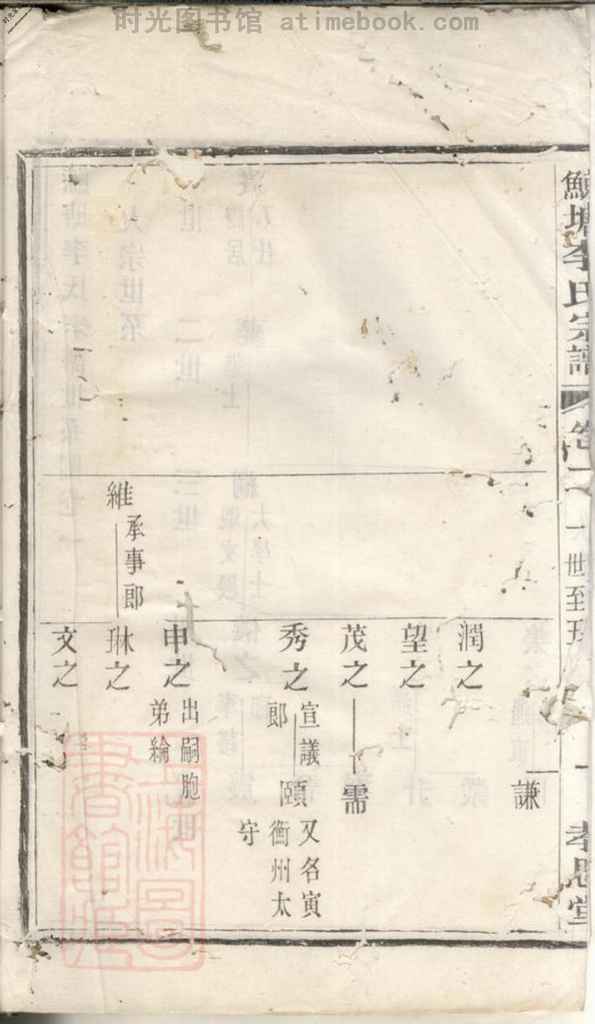 时光图书馆 atimebook.com
李氏宗譜
卷一
一世至
孝思堂
謙
潤之
望之
茂之
需
秀之
宣議
郎
頤
又名寅
衡州太
守
申之
出嗣胞
弟綸
維
承事郎
琳之
文之